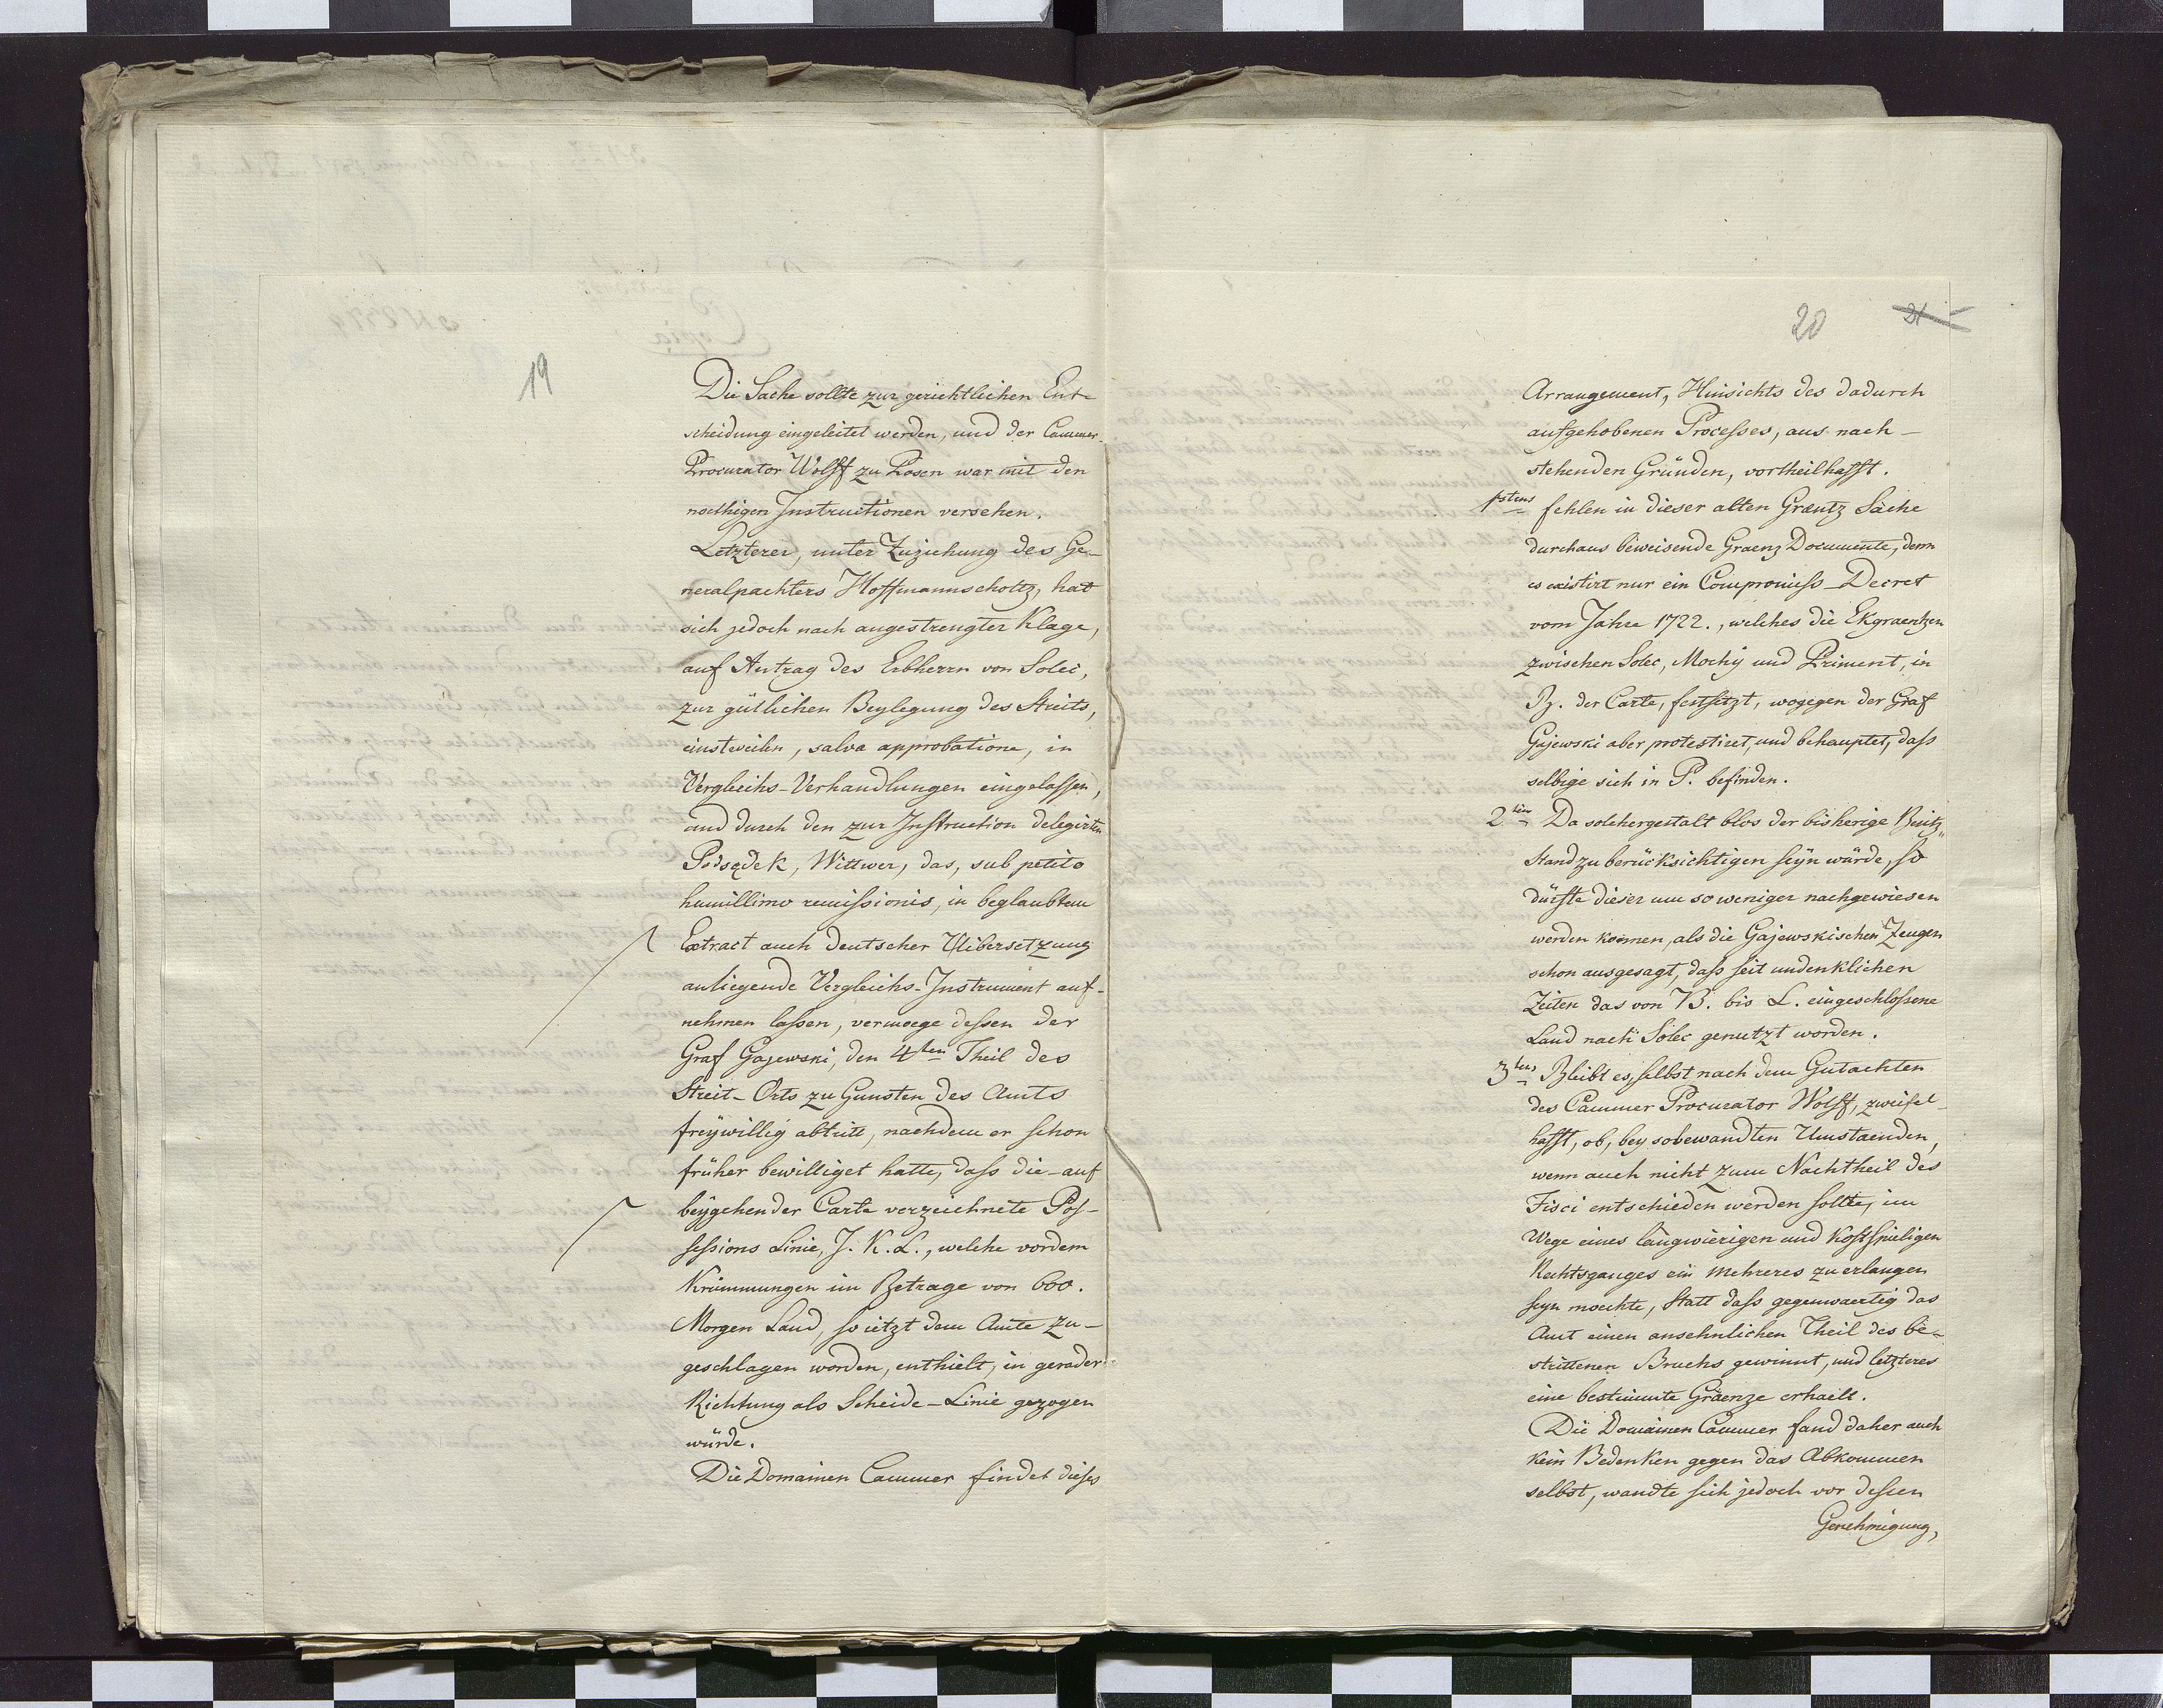 19
Die Sache sollte zur gerichtlichen Ent-
scheidung eingeleitet werden, und der Cammer-
Procurator Wolff zu Posen war mit den
noethigen Instructionen versehen.
Letzterer, unter Zuziehung des Ge-
neralpachters Hoffmannscholtz, hat
sich jedoch nach angestrengter Klage,
auf Antrag des Erbherrn von Solec,
zur gütlichen Beylegung des Streits,
einstweilen, salva approbatione, in
Vergleichs-Verhandlungen eingelassen,
und durch den zur Instruction delegirten
Podsędek, Wittwer, das, sub petito
humillimo remissionis, in beglaubtem
Extract auch deutscher Uibersetzung
anliegende Vergleichs-Instrument auf-
nehmen lassen, vermoege dessen der
Graf Gajewski, den 4ten Theil des
Streit-Orts zu Gunsten des Amts
freywillig abtritt, nachdem er schon
früher bewilliget hatte, dass die auf
beygehender Carte verzeichnete Pos-
sessions Linie, J. K. L., welche vordem
Krümmungen im Betrage von 600.
Morgen Land, so ietzt dem Amte zu-
geschlagen worden, enthielt, in gerader
Richtung als Scheide-Linie gezogen
würde.
Die Domainen Cammer findet dieses
20 21
Arrangement, Hinsichts des dadurch
aufgehobenen Processes, aus nach-
stehenden Gründen, vortheilhafft.
1stens fehlen in dieser alten Graentz Sache
durchaus beweisende Graenz Documente, denn
es existirt nur ein Compromiss-Decret
vom Jahre 1722., welches die Ekgraentzen
zwischen Solec, Mochy und Priment, in
B. der Carte, festsetzt, wogegen der Graf
Gajewski aber protestiret, und behauptet, dass
selbige sich in P. befinden.
2tens Da solchergestalt blos der bisherige Besitz-
stand zu berücksichtigen seyn würde, so
dürfte dieser um so weniger nachgewiesen
werden koennen, als die Gajewskischen Zeugen
schon ausgesagt, dass seit undenklichen
Zeiten das von B. bis L. eingeschlossene
Land nach Solec genutzt worden.
3tens Bleibt es, selbst nach dem Gutachten
des Cammer Procurator Wolff, zweifel-
hafft, ob, bey sobewandten Umstaenden,
wenn auch nicht zum Nachtheil des
Fisci entschieden werden sollte, im
Wege eines langwierigen und kostspieligen
Rechtsganges ein mehreres zu erlangen
seyn moechte, statt dass gegenwaertig das
Amt einen ansehnlichen Theil des be-
strittenen Bruchs gewinnt, und letzteres
eine bestimmte Gräenze erhaelt.
Die Domainen Cammer fand daher auch
kein Bedenken gegen das Abkommen
selbst, wandte sich jedoch vor dessen
Genehmigung,